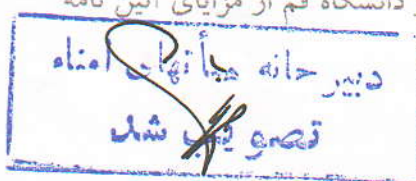 دانشگاه قم از مزایای آئین نامه
دبیرخانه هیأتهای امناء
تصویب شد